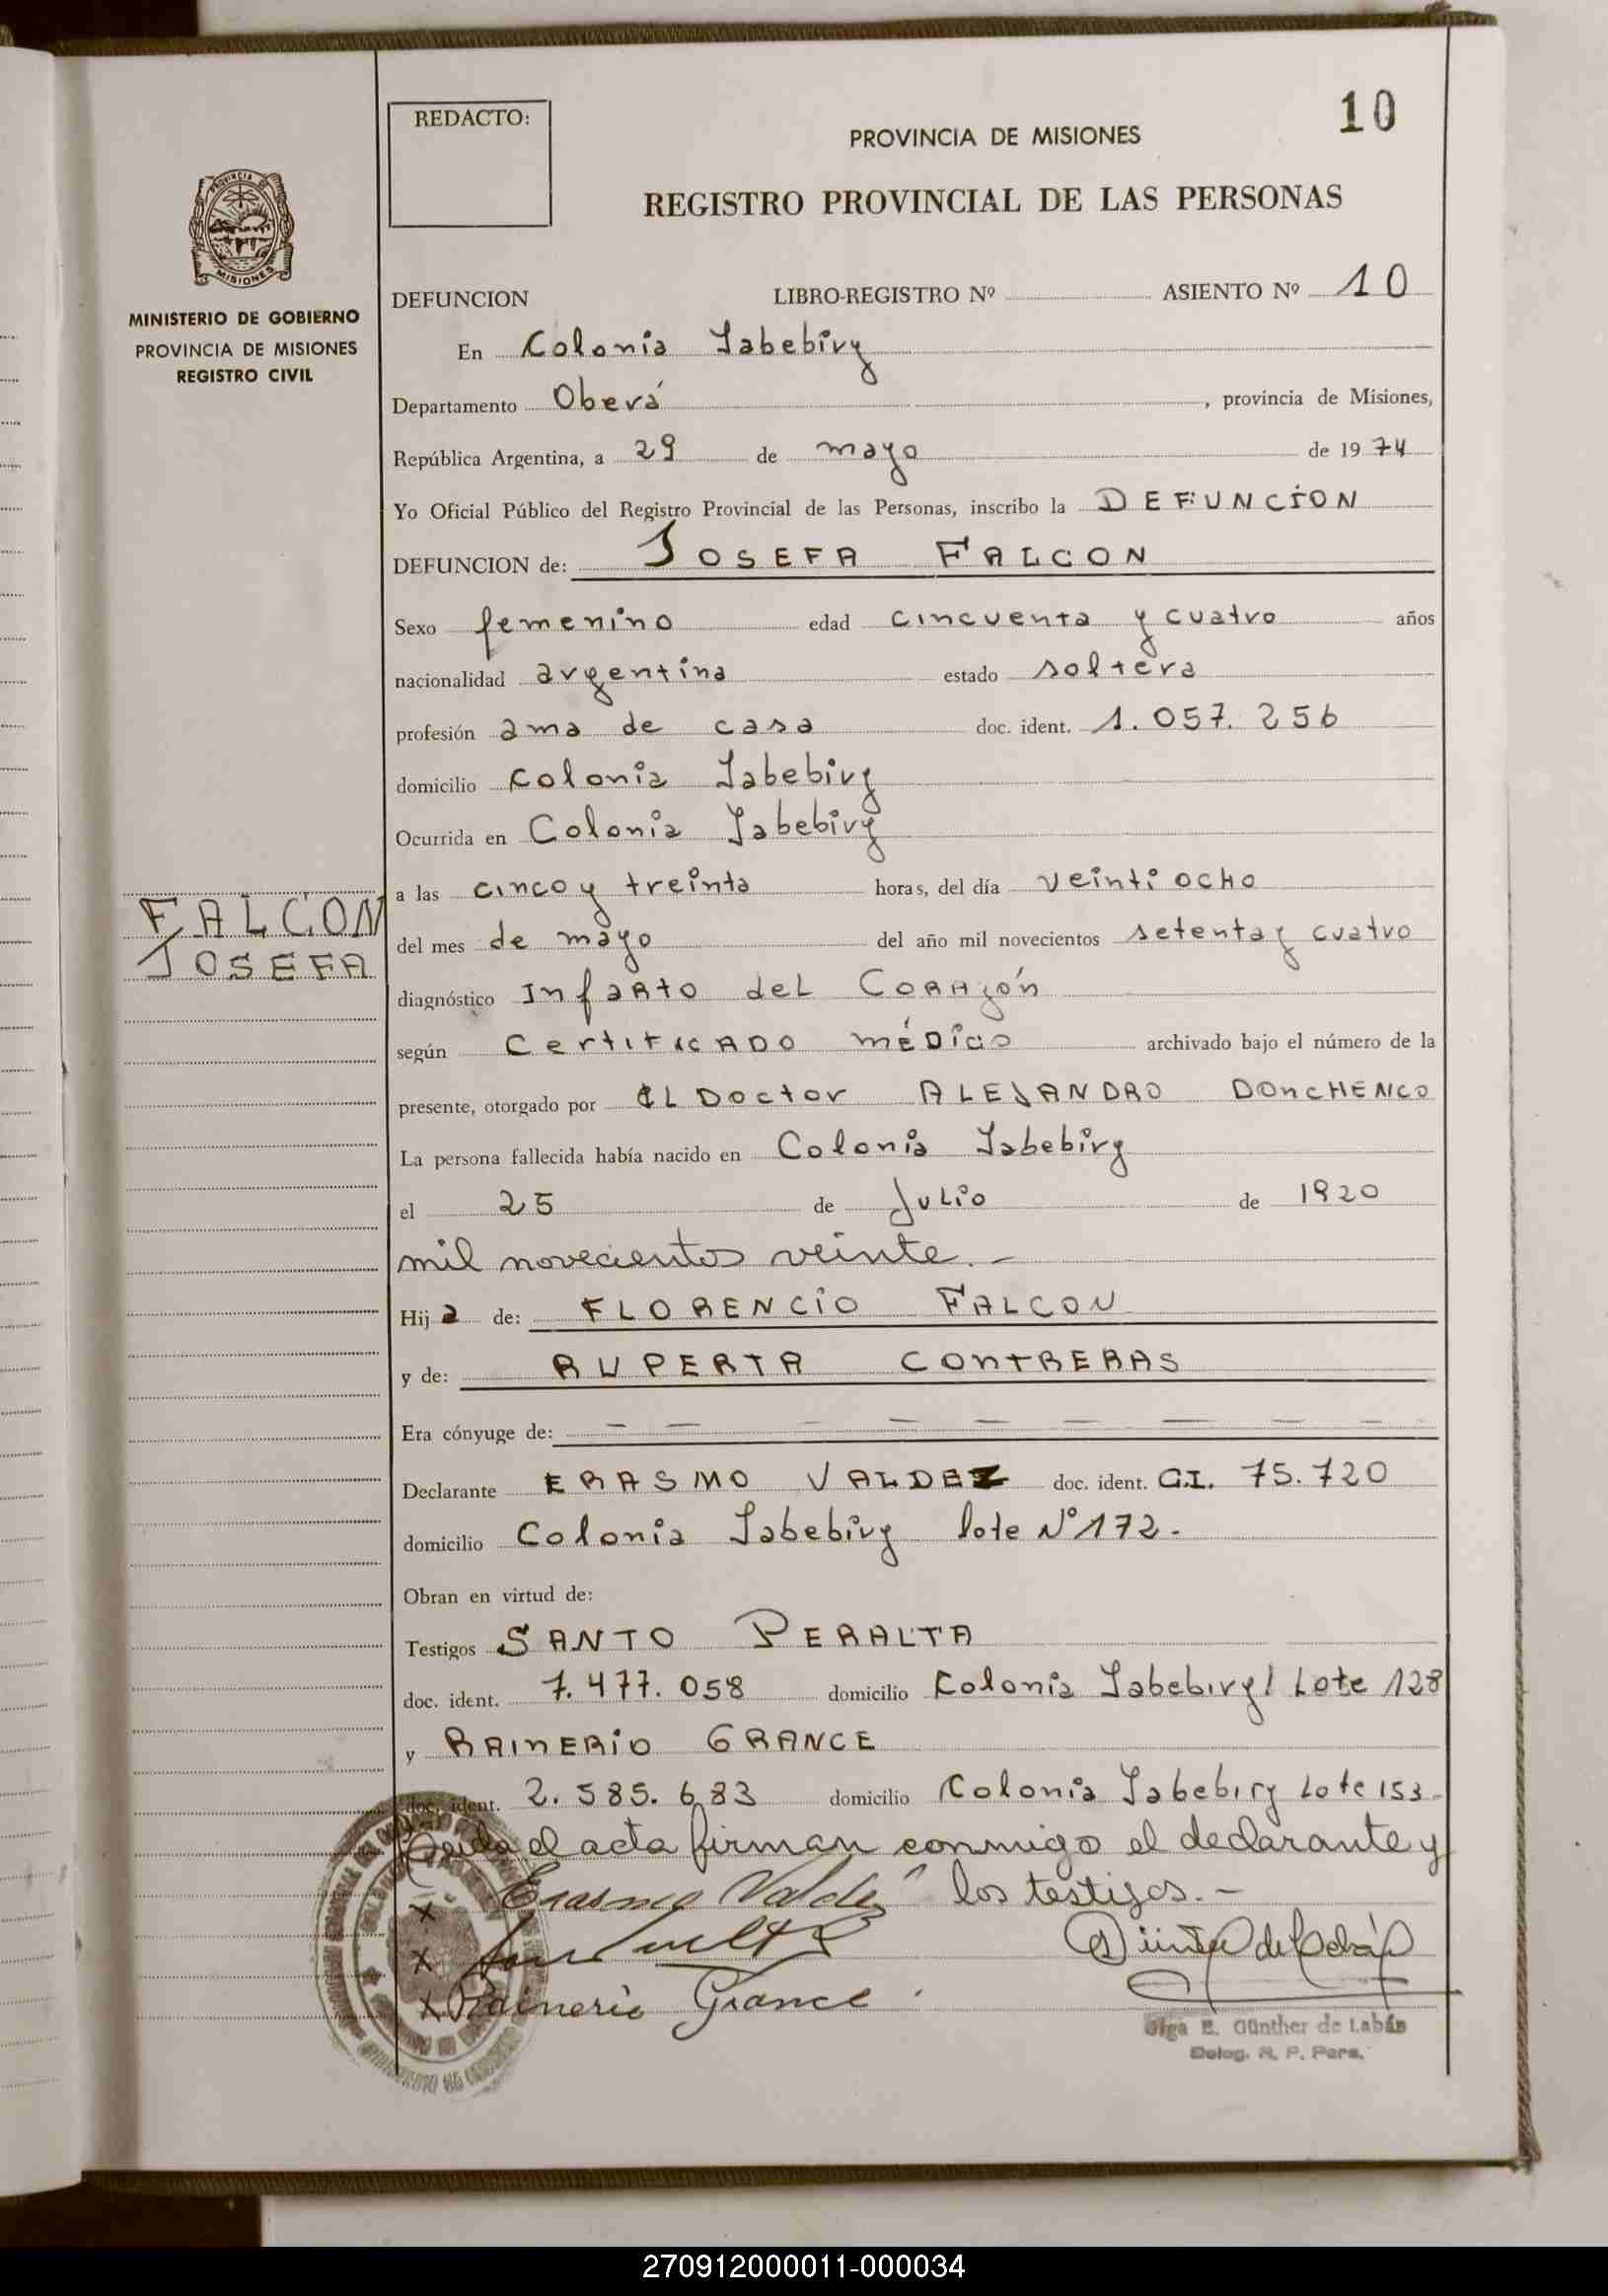 10
REDACTO:
PROVINCIA DE MISIONES
REGISTRO PROVINCIAL DE LAS PERSONAS
PROVINCIA DE
MISIONES
MINISTERIO DE GOBIERNO
PROVINCIA DE MISIONES
REGISTRO CIVIL
DEFUNCION LIBRO-REGISTRO Nº ASIENTO Nº 10
En Colonia Yabebiry
Departamento Oberá, provincia de Misiones,
República Argentina, a 29 de mayo de 1974
Yo Oficial Público del Registro Provincial de las Personas, inscribo la DEFUNCION
DEFUNCION de: JOSEFA FALCON
Sexo femenino edad cincuenta y cuatro años
nacionalidad argentina estado soltera
profesión ama de casa doc. ident. 1.057.256
domicilio Colonia Yabebiry
Ocurrida en Colonia Yabebiry
a las cinco y treinta horas, del día veintiocho
FALCON
JOSEFA
del mes de mayo del año mil novecientos setenta y cuatro
diagnóstico Infarto del Corazón
según Certificado médico archivado bajo el número de la
presente, otorgado por el Doctor ALEJANDRO DONCHENCO
La persona fallecida había nacido en Colonia Yabebiry
el 25 de Julio de 1920
mil novecientos veinte.-
Hija de: FLORENCIO FALCON
y de: RUPERTA CONTRERAS
Era cónyuge de: — — — — — — — — —
Declarante ERASMO VALDEZ doc. ident. C.I. 75.720
domicilio Colonia Yabebiry lote Nº 172.-
Obran en virtud de:
Testigos SANTO PERALTA
doc. ident. 7.477.058 domicilio Colonia Yabebiry/ Lote 128
y RAINERIO GRANCE
doc. ident. 2.585.683 domicilio Colonia Yabebiry Lote 153-
Leida el acta firman conmigo el declarante y
x Erasmo Valdez los testigos.-
x
x Rainerio Grance
Olga E. Günther de Labás
Deleg. R. P. Pers.
270912000011-000034